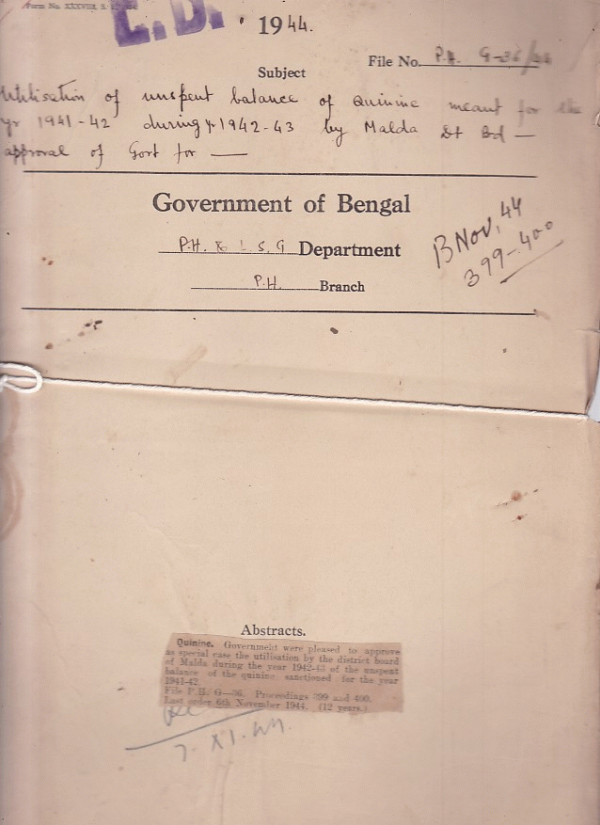 Form No. XXXVIII
L.D.
1944.
File No. P.H. G-36/44
Subject
Utilisation of unspent balance of Quinine meant for the
yr 1941-42 during yr 1942-43 by Malda Dt Bd —
approval of Govt for —
Government of Bengal
P.H. & L.S.G Department
P.H. Branch
B Nov, 44
399-400
Abstracts.
Quinine. Government were pleased to approve
as special case the utilisation by the district board
of Malda during the year 1942-43 of the unspent
balance of the quinine sanctioned for the year
1941-42.
File P.H. G—36. Proceedings 399 and 400.
Last order 6th November 1944. (12 years.)
7.XI.44.